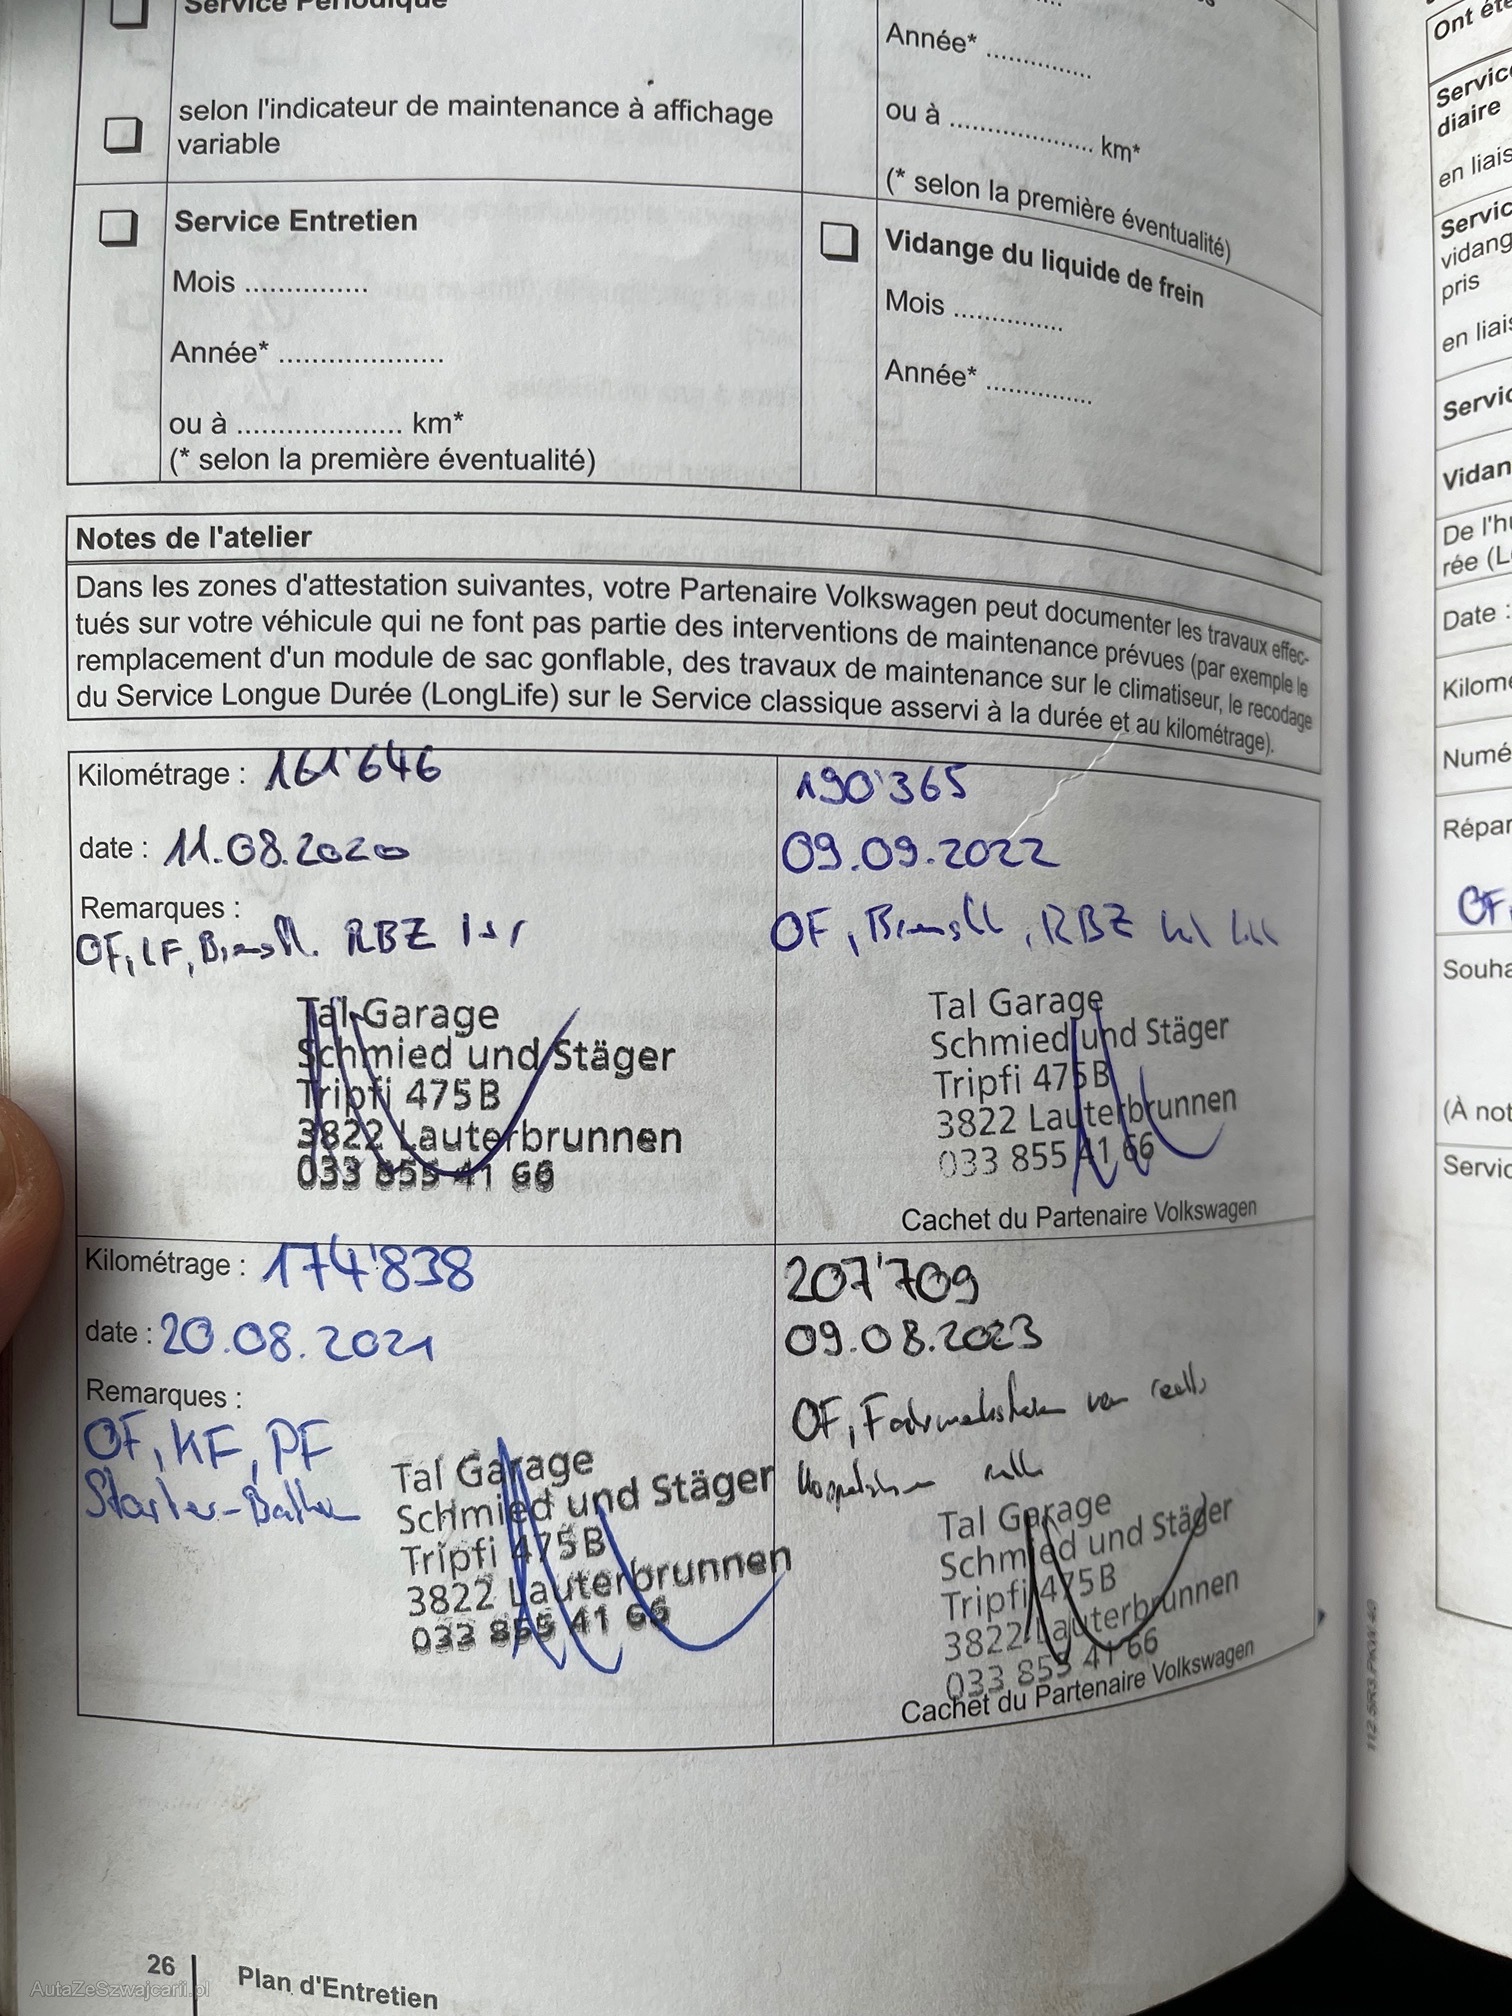 Service Périodique
selon l'indicateur de maintenance à affichage
variable
Année* ..............
ou à ................... km*
(* selon la première éventualité)
Service Entretien
Mois ...............
Année* ....................
ou à .................... km*
(* selon la première éventualité)
Vidange du liquide de frein
Mois ..............
Année* ..............
Notes de l'atelier
Dans les zones d'attestation suivantes, votre Partenaire Volkswagen peut documenter les travaux effec-
tués sur votre véhicule qui ne font pas partie des interventions de maintenance prévues (par exemple le
remplacement d'un module de sac gonflable, des travaux de maintenance sur le climatiseur, le recodage
du Service Longue Durée (LongLife) sur le Service classique asservi à la durée et au kilométrage).
Kilométrage : 161'646
date : 11.08.2020
Remarques :
OF, LF, Bremsfl. RBZ
Tal Garage
Schmied und Stäger
Tripfi 475B
3822 Lauterbrunnen
033 855 41 66
190'365
09.09.2022
OF, Bremsfl, RBZ
Tal Garage
Schmied und Stäger
Tripfi 475B
3822 Lauterbrunnen
033 855 41 66
Cachet du Partenaire Volkswagen
Kilométrage : 174'838
date : 20.08.2021
Remarques :
OF, KF, PF
Starter-Batterie
Tal Garage
Schmied und Stäger
Tripfi 475B
3822 Lauterbrunnen
033 855 41 66
207'709
09.08.2023
OF,
Tal Garage
Schmied und Stäger
Tripfi 475B
3822 Lauterbrunnen
033 855 41 66
Cachet du Partenaire Volkswagen
26
Plan d'Entretien
AutaZeSzwajcarii.pl
Ont été
Servic
diaire
en liais
Servic
vidang
pris
en liais
Servic
Vidan
De l'hu
rée (L
Date :
Kilomé
Numé
Répar
OF,
Souha
(À not
Servic